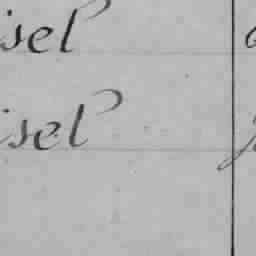 isel
isel